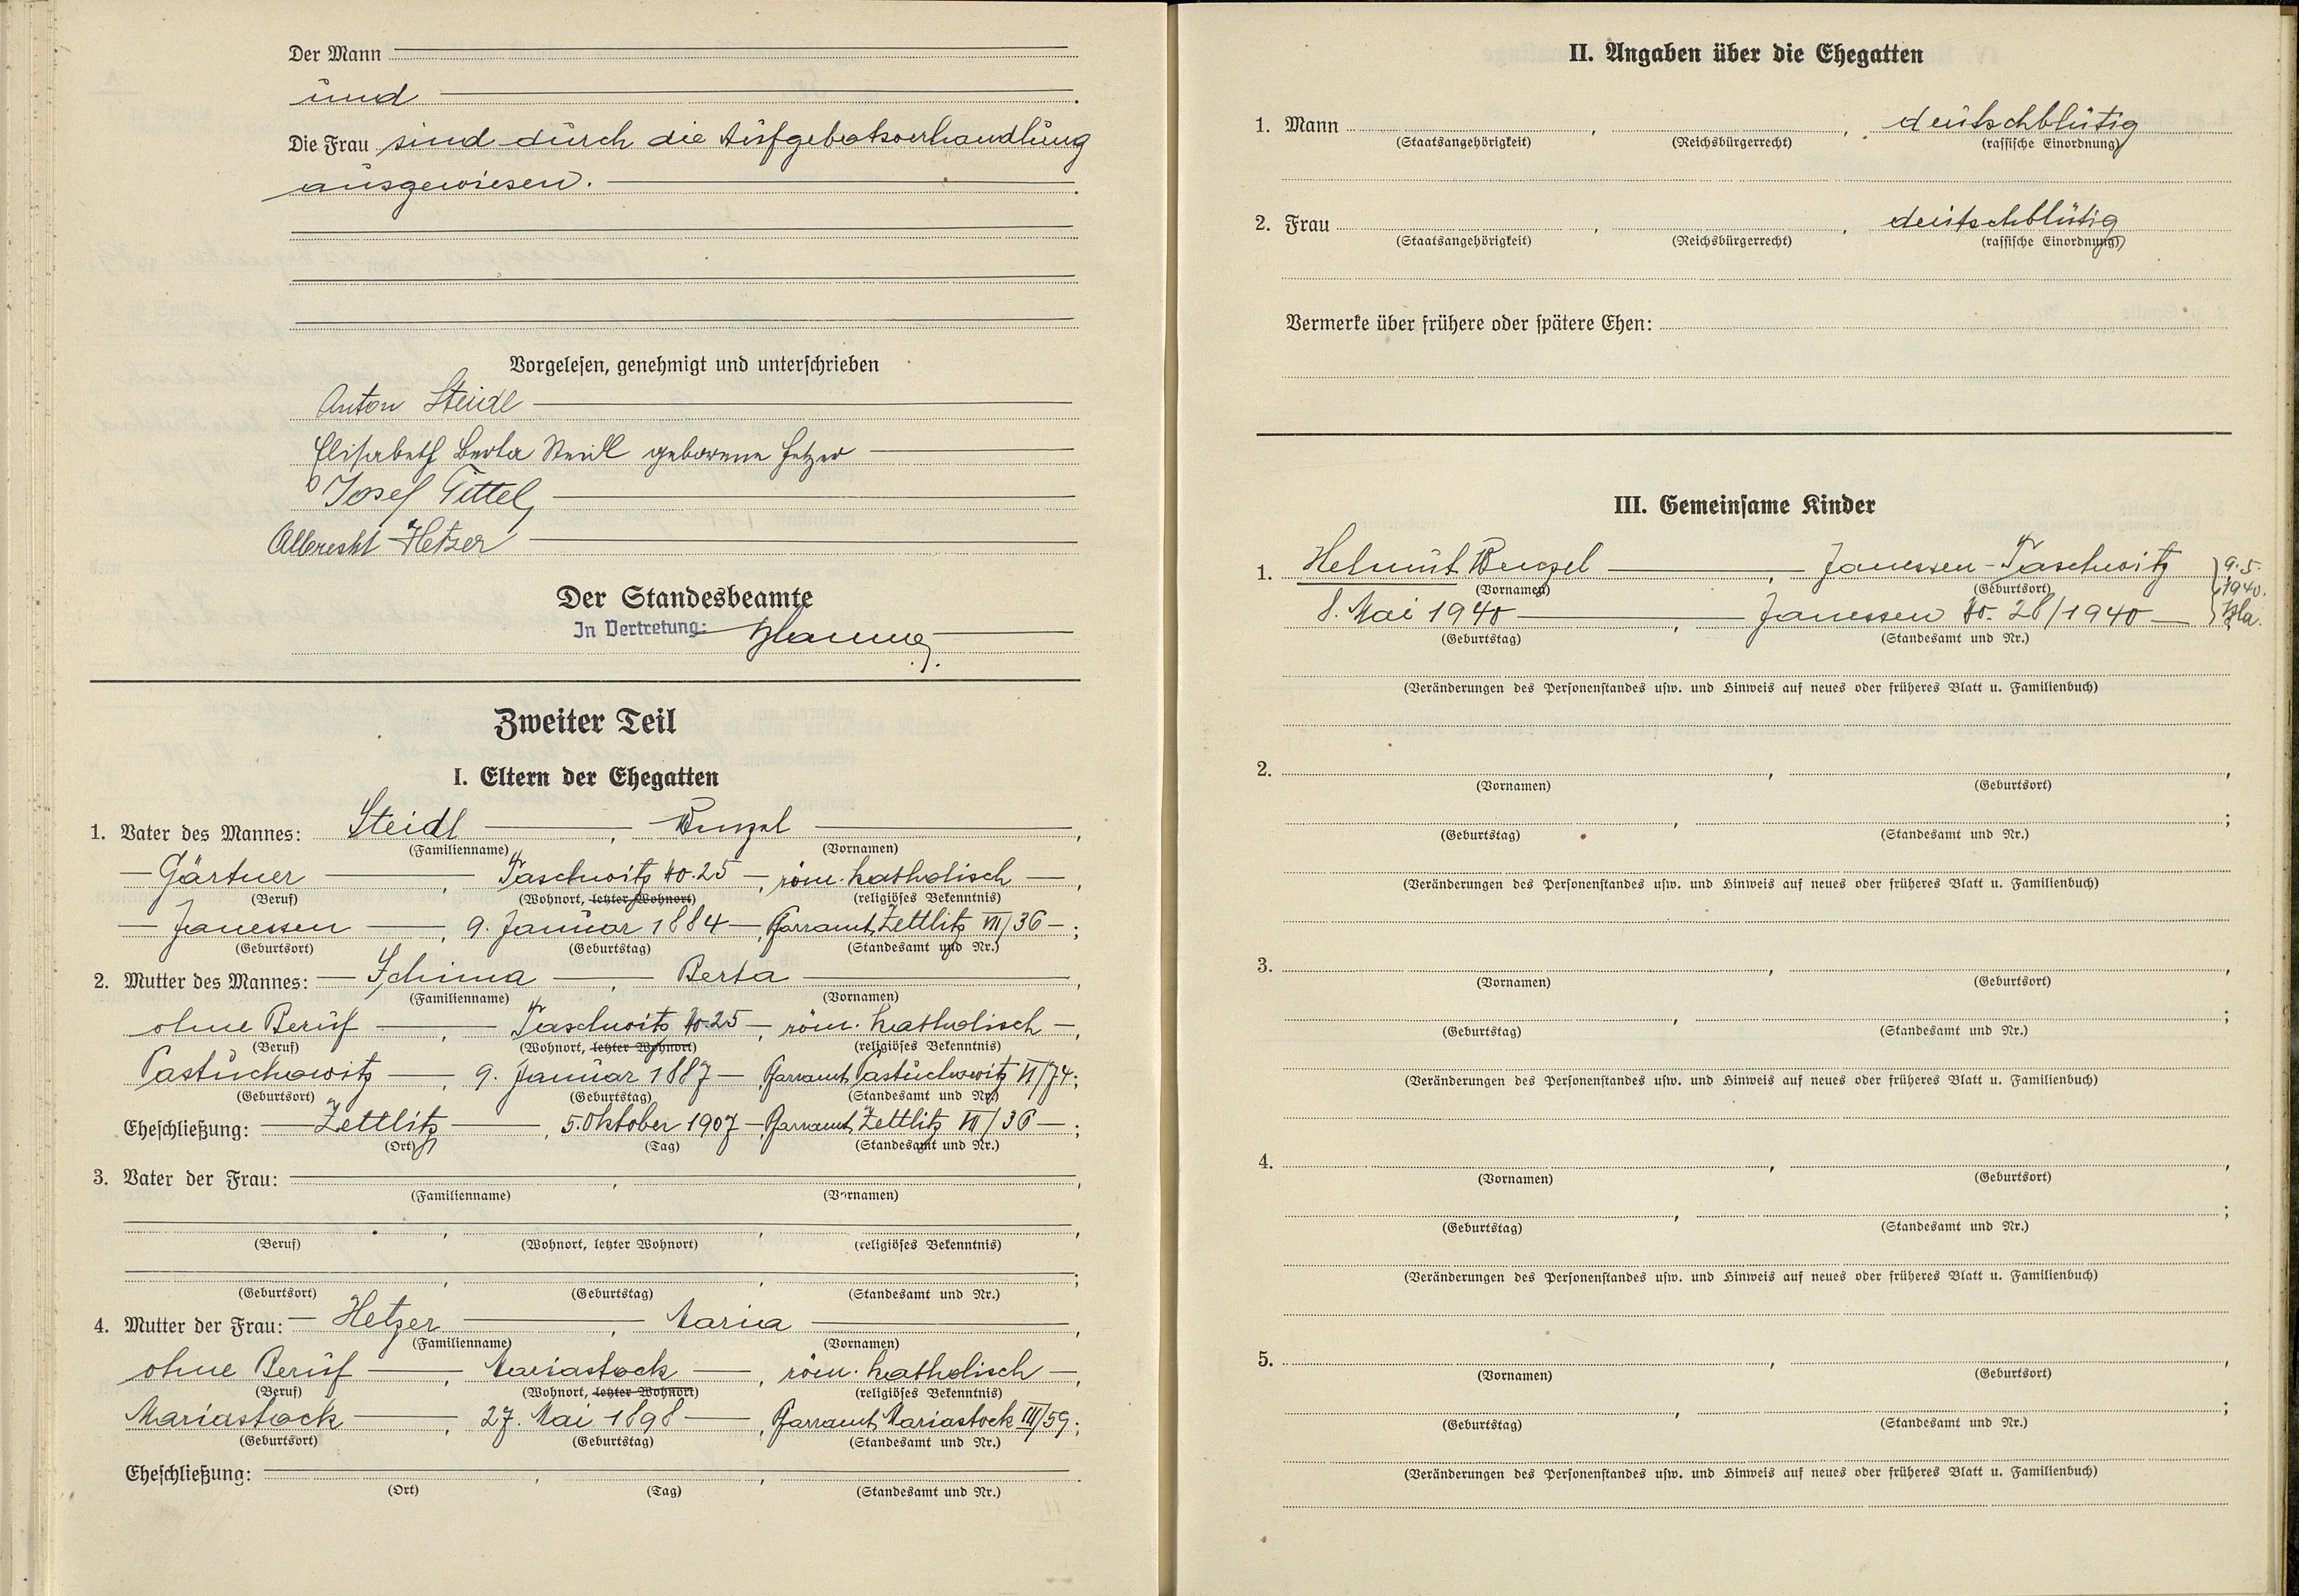 Der Mann
und
Die Frau sind durch die Aufgebotsverhandlung
ausgewiesen.
Vorgelesen, genehmigt und unterschrieben
Anton Steidl
Elisabeth Berta Steidl geborene Hetzer
Josef Tittel
Albrecht Hetzer
Der Standesbeamte
In Vertretung:
Zweiter Teil
I. Eltern der Ehegatten
1. Vater des Mannes: Steidl, Wenzel,
(Familienname) (Vornamen)
Gärtner, Taschwitz No. 25, röm. katholisch,
(Beruf) (Wohnort, letzter Wohnort) (religiöses Bekenntnis)
Janessen, 9. Januar 1884, Pfarramt Zettlitz VII/36;
(Geburtsort) (Geburtstag) (Standesamt und Nr.)
2. Mutter des Mannes: Schima, Berta,
(Familienname) (Vornamen)
ohne Beruf, Taschwitz No. 25, röm. katholisch,
(Beruf) (Wohnort, letzter Wohnort) (religiöses Bekenntnis)
Pastuchowitz, 9. Januar 1887, Pfarramt Pastuchowitz VI/74;
(Geburtsort) (Geburtstag) (Standesamt und Nr.)
Eheschließung: Zettlitz, 5. Oktober 1907, Pfarramt Zettlitz VII/36;
(Ort) (Tag) (Standesamt und Nr.)
3. Vater der Frau:
(Familienname) (Vornamen)
(Beruf) (Wohnort, letzter Wohnort) (religiöses Bekenntnis)
(Geburtsort) (Geburtstag) (Standesamt und Nr.)
4. Mutter der Frau: Hetzer, Maria,
(Familienname) (Vornamen)
ohne Beruf, Mariastock, röm. katholisch,
(Beruf) (Wohnort, letzter Wohnort) (religiöses Bekenntnis)
Mariastock, 27. Mai 1898, Pfarramt Mariastock III/59;
(Geburtsort) (Geburtstag) (Standesamt und Nr.)
Eheschließung:
(Ort) (Tag) (Standesamt und Nr.)
II. Angaben über die Ehegatten
1. Mann , , deutschblütig
(Staatsangehörigkeit) (Reichsbürgerrecht) (rassische Einordnung)
2. Frau , , deutschblütig
(Staatsangehörigkeit) (Reichsbürgerrecht) (rassische Einordnung)
Vermerke über frühere oder spätere Ehen:
III. Gemeinsame Kinder
1. Helmut Wenzel, Janessen-Taschwitz 9.5.
(Vornamen) (Geburtsort) 1940.
8. Mai 1940, Janessen No. 28/1940
(Geburtstag) (Standesamt und Nr.)
(Veränderungen des Personenstandes usw. und Hinweis auf neues oder früheres Blatt u. Familienbuch)
2.
(Vornamen) (Geburtsort)
(Geburtstag) (Standesamt und Nr.)
(Veränderungen des Personenstandes usw. und Hinweis auf neues oder früheres Blatt u. Familienbuch)
3.
(Vornamen) (Geburtsort)
(Geburtstag) (Standesamt und Nr.)
(Veränderungen des Personenstandes usw. und Hinweis auf neues oder früheres Blatt u. Familienbuch)
4.
(Vornamen) (Geburtsort)
(Geburtstag) (Standesamt und Nr.)
(Veränderungen des Personenstandes usw. und Hinweis auf neues oder früheres Blatt u. Familienbuch)
5.
(Vornamen) (Geburtsort)
(Geburtstag) (Standesamt und Nr.)
(Veränderungen des Personenstandes usw. und Hinweis auf neues oder früheres Blatt u. Familienbuch)